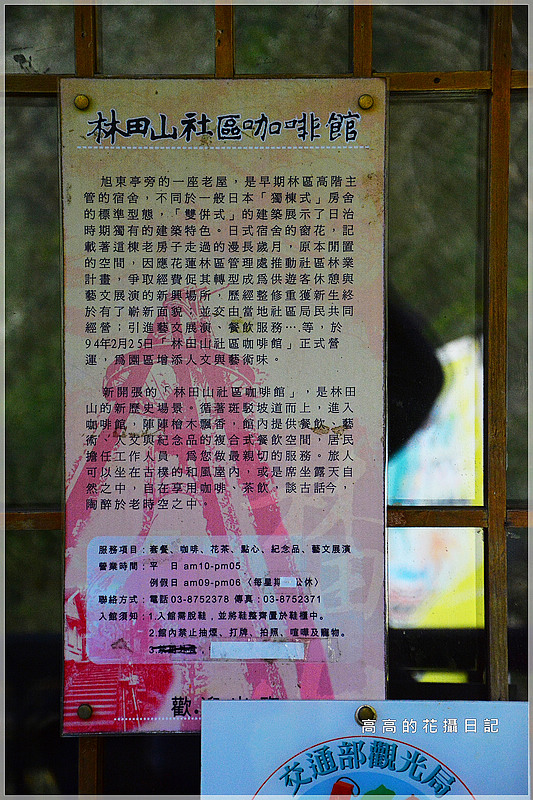 林田山社區咖啡館
旭東亭旁的一座老屋，是早期林區高階主
管的宿舍，不同於一般日本「獨棟式」房舍
的標準型態，「雙併式」的建築展示了日治
時期獨有的建築特色。日式宿舍的窗花，記
載著這棟老房子走過的漫長歲月，原本閒置
的空間，因應花蓮林區管理處推動社區林業
計畫，爭取經費促其轉型成為供遊客休憩與
藝文展演的新興場所，歷經整修重獲新生終
於有了嶄新面貌，並交由當地社區居民共同
經營；引進藝文展演、餐飲服務…等，於
94年2月25日「林田山社區咖啡館」正式營
運，為園區增添人文與藝術味。
新開張的「林田山社區咖啡館」，是林田
山的新歷史場景。循著斑駁坡道而上，進入
咖啡館，陣陣檜木飄香，館內提供餐飲、藝
術、人文與紀念品的複合式餐飲空間，居民
擔任工作人員，為您做最親切的服務。旅人
可以坐在古樸的和風屋內，或是席坐露天自
然之中，自在享用咖啡、茶飲，談古話今，
陶醉於老時空之中。
服務項目：套餐、咖啡、花茶、點心、紀念品、藝文展演
營業時間：平　日 am10-pm05
例假日 am09-pm06〈每星期　公休〉
聯絡方式：電話03-8752378 傳真：03-8752371
入館須知：1.入館需脫鞋，並將鞋整齊置於鞋櫃中。
2.館內禁止抽煙、打牌、拍照、喧嘩及寵物。
3.
歡
高高的花攝日記
交通部觀光局